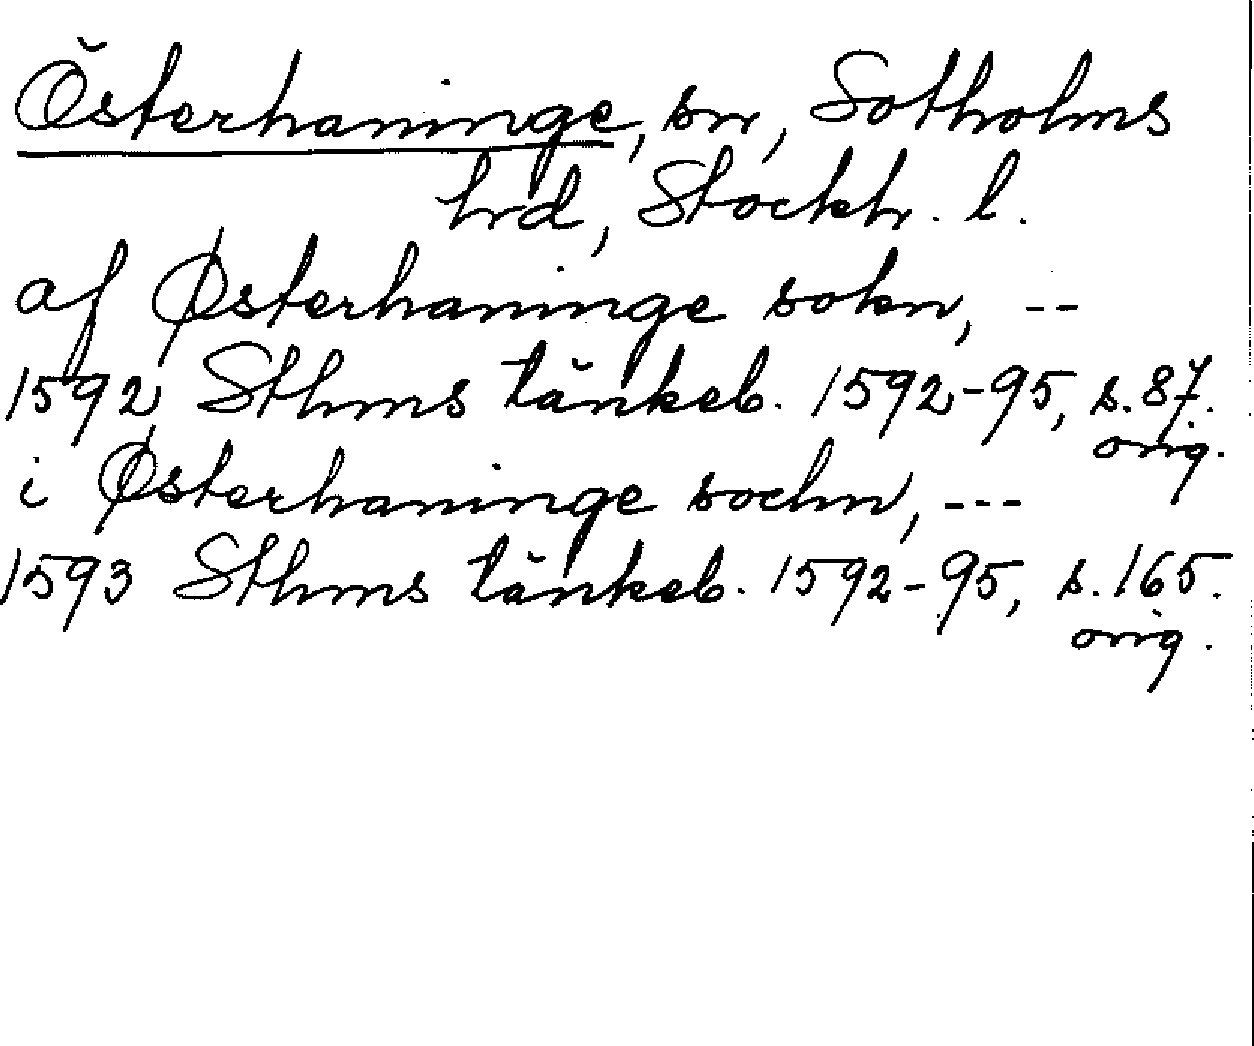 Österhaninge, sn, Sotholms
hrd, Stockh. l.
af Østerhaninge sokn, --
1592 Sthms tänkeb. 1592-95, s. 87.
orig.
i Østerhaninge sochn, ---
1593 Sthms tänkeb. 1592-95, s. 165.
orig.